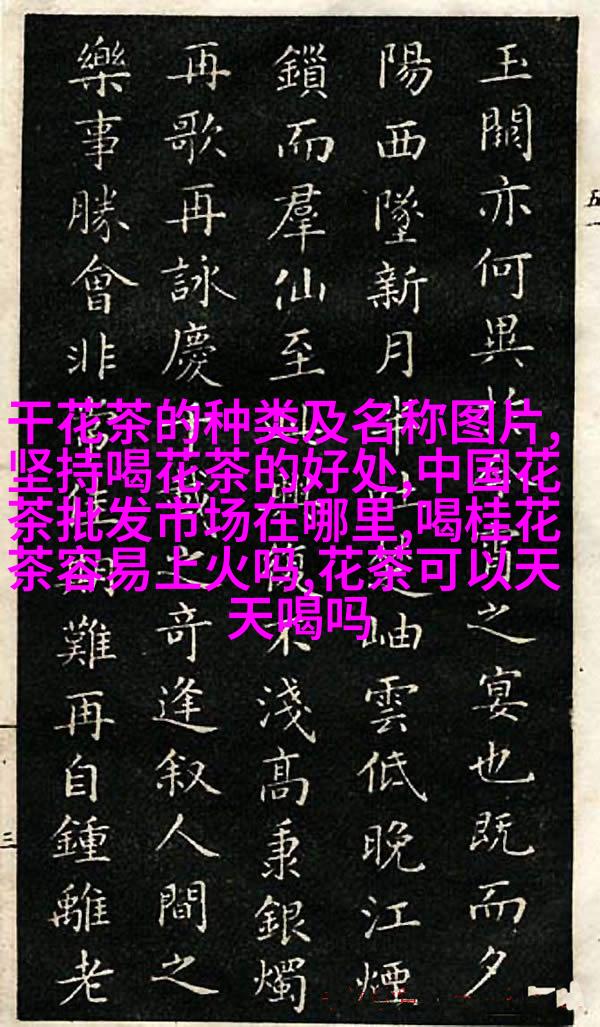 玉關亦何異於今宵之宴也既而夕
陽西墜新月半出楚岫雲低晚江煙
鎖而羣仙至興復不淺高秉銀燭
再歌再詠慶千載之奇逢叙人間之
樂事勝會非常佳期難再自鍾離老
干花茶的种类及名称图片,
坚持喝花茶的好处,中国花
茶批发市场在哪里,喝桂花
茶容易上火吗,花茶可以天
天喝吗
五一
三